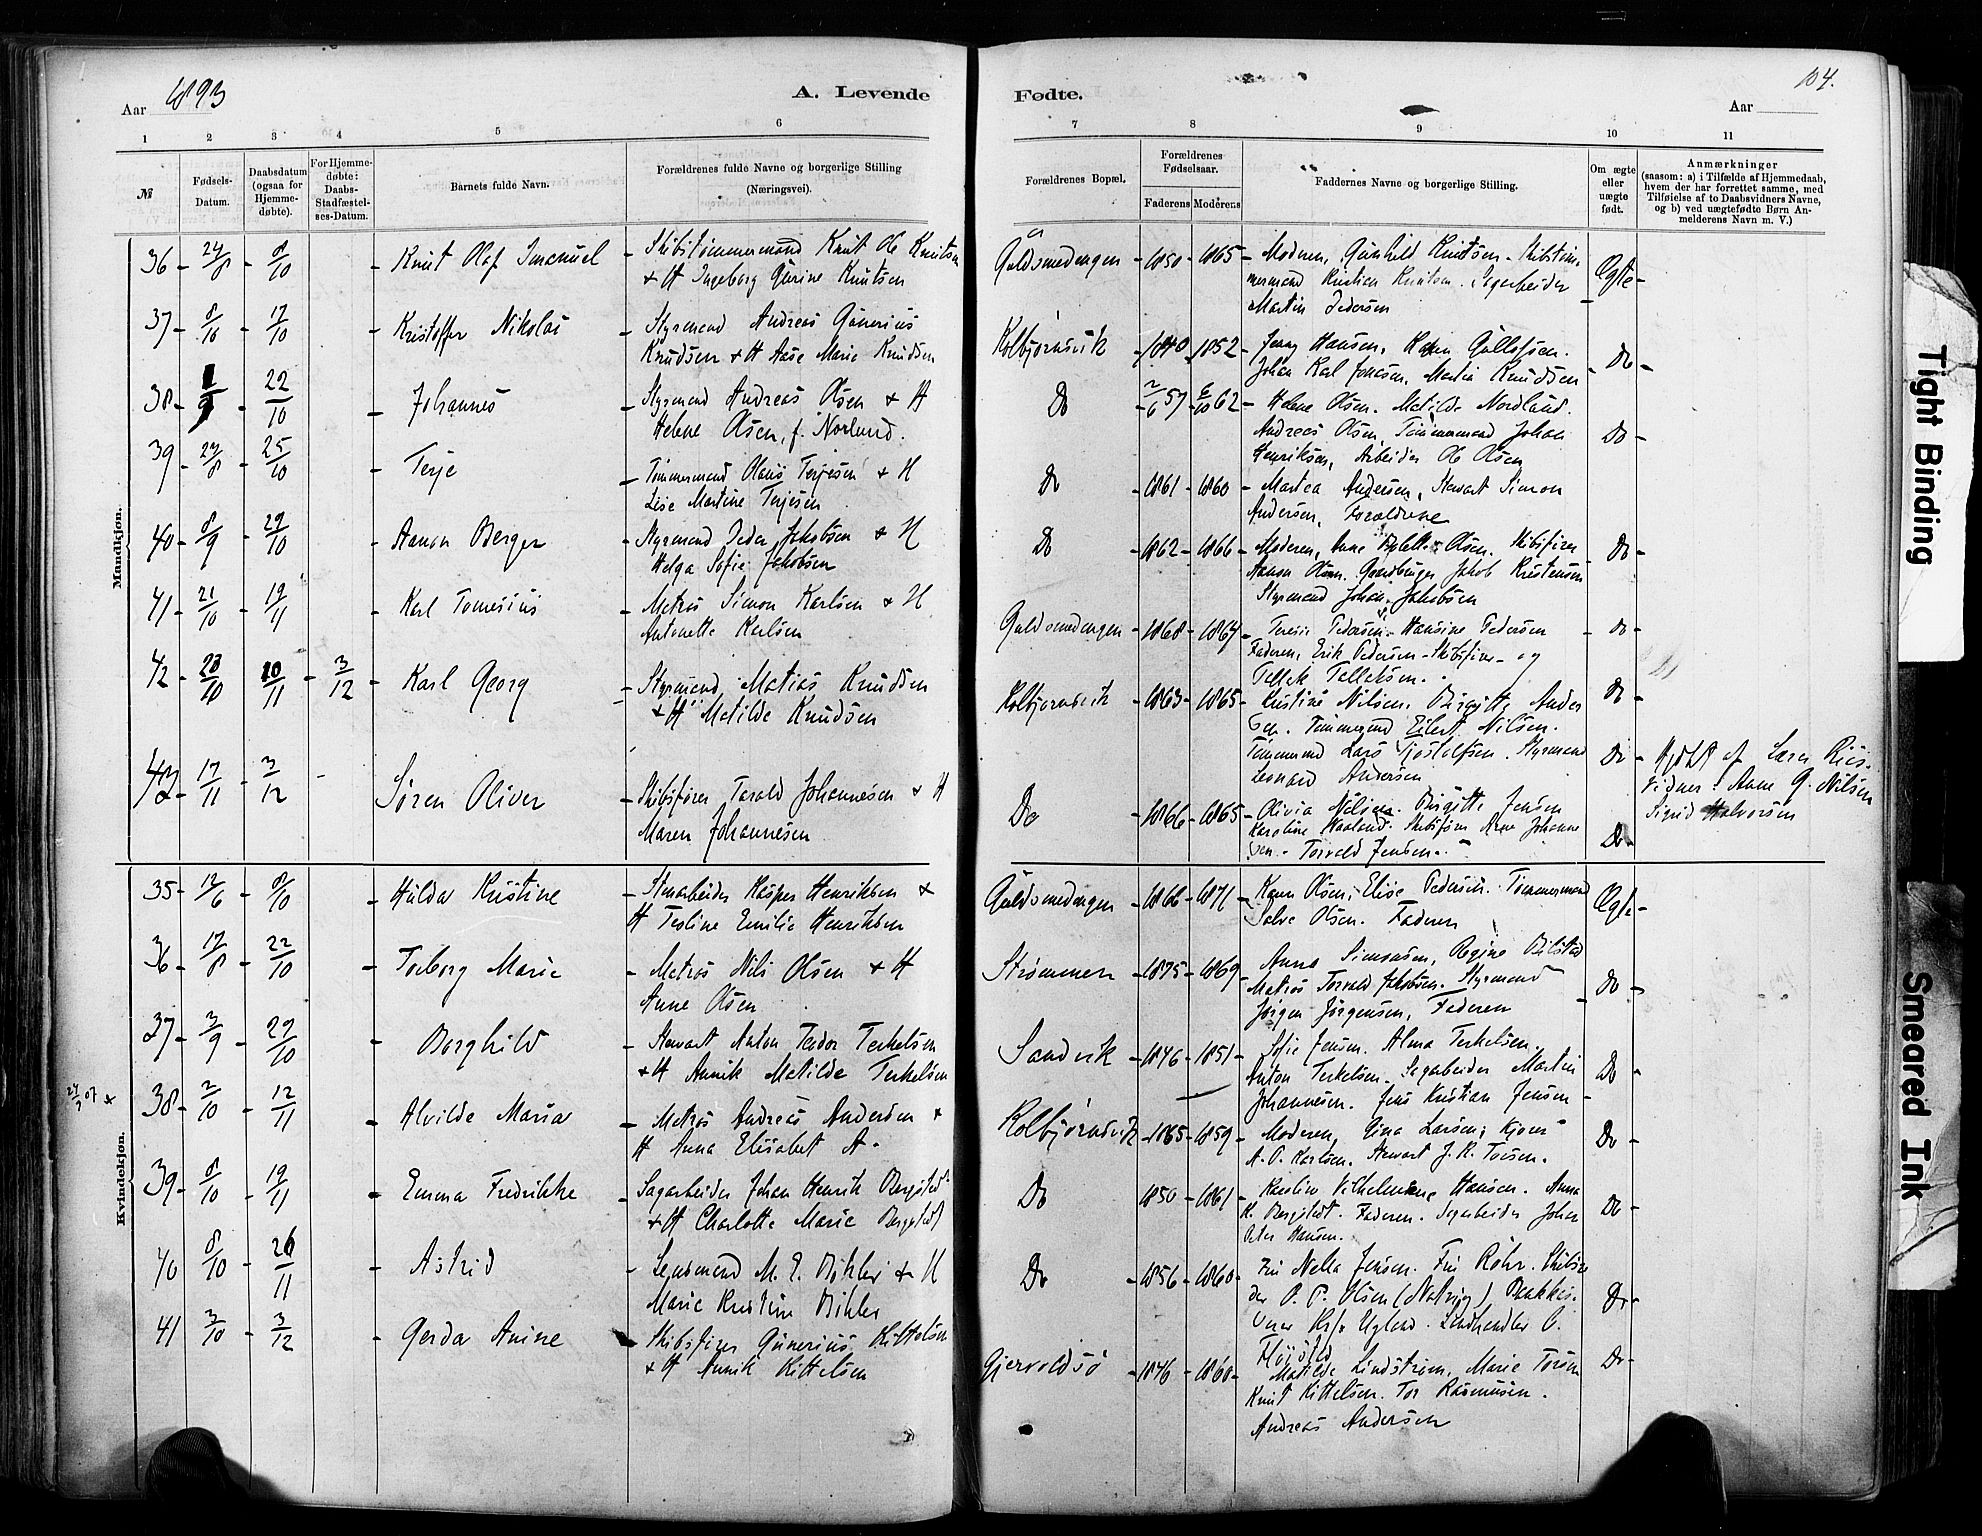 Aar 1893
A. Levende
Fødte.
104.
Aar
1 2 3 4 5 6
7 8 9 10 11
№
Fødsels-Datum.
Daabsdatum (ogsaa for Hjemme-døbte).
For Hjemme-døbte: Daabs-Stadfæstel-ses-Datum.
Barnets fulde Navn.
Forældrenes fulde Navne og borgerlige Stilling (Næringsvei).
Forældrenes Bopæl.
Forældrenes Fødselsaar.
Faderens Moderens
Faddernes Navne og borgerlige Stilling.
Om ægte eller uægte født.
Anmærkninger
(saasom: a) i Tilfælde af Hjemmedaab,
hvem der har forrettet samme, med
Tilføielse af to Daabsvidners Navne,
og b) ved uægtefødte Børn An-
melderens Navn m. V.)
Mandkjøn.
36 - 24/8 - 8/10 - Knut Olaf Imanuel - Skibstømmermand Knut Ole Knutsen
& H Ingeborg Gurine Knutsen
Guldsmedengen - 1850 - 1865 - Moderen, Gunhild Knutsen. Skibstøm-
mermand Kristian Knutsen. Sagarbeider
Martin Pedersen
Ægte -
37 - 8/10 - 17/10 - Kristoffer Nikolai - Styrmand Andreas Gunerius
Knudsen & H Aase Marie Knudsen
Kolbjørnsvik - 1840 - 1852 - Jenny Hansen, Karen Gullofsen.
Johan Karl Jonasen, Martin Knudsen
- Do -
38 - 1/9 - 22/10 - Johannes - Styrmand Andreas Olsen & H
Helene Olsen, f. Norlund.
Do - 2/6 57 - 6/10 62 - Helene Olsen. Matilde Nordlund.
Andreas Olsen, Tømmermand Johan
Henriksen, Arbeider Ole Olsen
Do -
39 - 23/8 - 25/10 - Terje - Tømmermand Olaus Terjesen & H
Lise Martine Terjesen
Do - 1861 - 1860 - Martea Andersen, Stewart Simon
Andersen, Forældrene
40 - 8/9 - 29/10 - Aanon Berger - Styrmand Peder Jakobsen & H
Helga Sofie Jakobsen
Do - 1862 - 1866 - Moderen, Anne Olsen. Skibsfører
Aanon Olsen. Jakob Kristensen
Styrmand Johan Jakobsen
Do -
41 - 21/10 - 19/11 - Karl Tomesius - Matros Simon Karlsen & H
Antonette Karlsen
Guldsmedengen - 1868 - 1864 - Teresie Pedersen - Hansine Pedersen
Faderen, Erik Pedersen - Skibsfører - og
Tellek Tellefsen.
- Do -
42 - 23/10 - 10/11 - 3/12 - Karl Georg - Styrmand, Matias Knudsen
& H Matilde Knudsen
Kolbjørnsvik - 1863 - 1865 - Kristine Nilsen. Birgitte Ander
sen. Tømmermand Eilert Nilsen.
Tømmermand Lars Tjostolfsen. Styrmand
Leonard Andersen
Do
Do - Hjdbt af Lærer Riis.
Vidner: Anne G. Nilsen
Sigrid Halvorsen
43 - 17/11 - 3/12 - Søren Oliver - Skibsfører Torald Johannesen & H
Maren Johannesen
Do - 1866 - 1865 - Olivia Nilsen. Birgitte Jensen
Karoline Skibsfører Arne Johanne
sen. - Torvald Jensen. -
Do -
Kvindekjøn.
35 - 12/6 - 8/10 - Hulda Kristine - Stenarbeider Kasper Henriksen &
H Tesline Emilie Henriksen
Guldsmedengen - 1866 - 1871 - Karen Olsen, Elise Pedersen. Tømmermand
Salve Olsen. Faderen
Ægte -
36 - 17/8 - 22/10 - Torborg Marie - Matros Nils Olsen & H
Anne Olsen
Strømmen - 1875 - 1869 - Anna Simonsen, Regine
Matros Torvald Jakobsen. Styrmand
Jørgen Jørgensen, Faderen
- Do -
37 - 3/9 - 29/10 - Borghild - Stewart Anton Teodor Terkelsen
& H Annik Matilde Terkelsen
Sandvik - 1846 - 1851 - Sofie Jensen. Alma Terkelsen.
Anton Terkelsen. Sagarbeider Martin
Johannesen. Jens Kristian Jensen -
Do -
38 - 2/10 - 12/11 - Alvilde Maria - Matros Andreas Andersen &
H Anna Elisabet A.
Kolbjørnsvik - 1865 - 1859 - Moderen, Gina Larsen;
A. O. Karlsen. Stewart J. K. Toesen.
Do -
39 - 8/10 - 19/11 - Emma Fredrikke - Sagarbeider Johan Henrik Bergstedt
& H Charlotte Marie Bergstedt
Do - 1850 - 1861 - Karoline Vilhelmine Hansen. Anna
K. Bergstedt. Faderen. Sagarbeider Johan
Peter Hansen.
Do -
40 - 8/10 - 26/11 - Astrid - Lensmand M. E. & H
Marie Kristine
Do - 1856 - 1860 - Fru Nella Jensen. Fru Röhr.
O. P. Olsen
Ugland.
Do -
41 - 3/10 - 3/12 - Gerda Anine - Skibsfører Gunerius Kittelsen
& H Annik Kittelsen
Gjervoldsö - 1846 - 1860 - Matilde Lindstrøm, Marie Torsen
Knut Kittelsen. Tor Rasmusen.
Andreas Andersen
Do -
Tight Binding
Smeared Ink